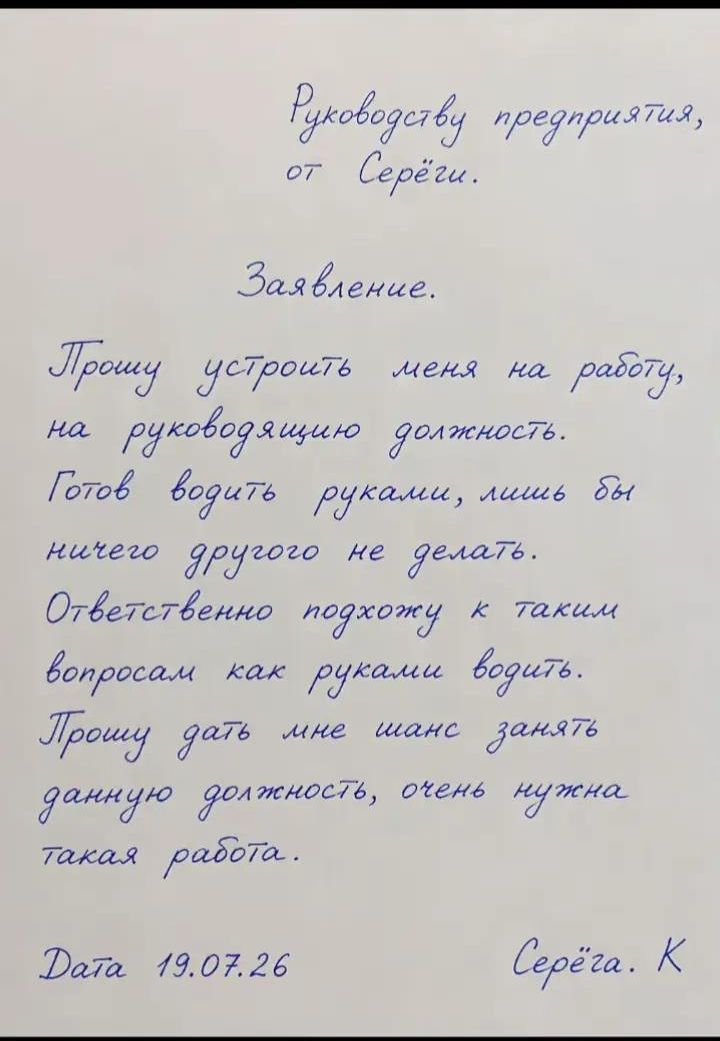 Руководству предприятия,
от Серёги.
Заявление.
Прошу устроить меня на работу,
на руководящию должность.
Готов водить руками, лишь бы
ничего другого не делать.
Ответственно подхожу к таким
вопросам как руками водить.
Прошу дать мне шанс занять
данную должность, очень нужна
такая работа.
Дата 19.07.26 Серёга. К